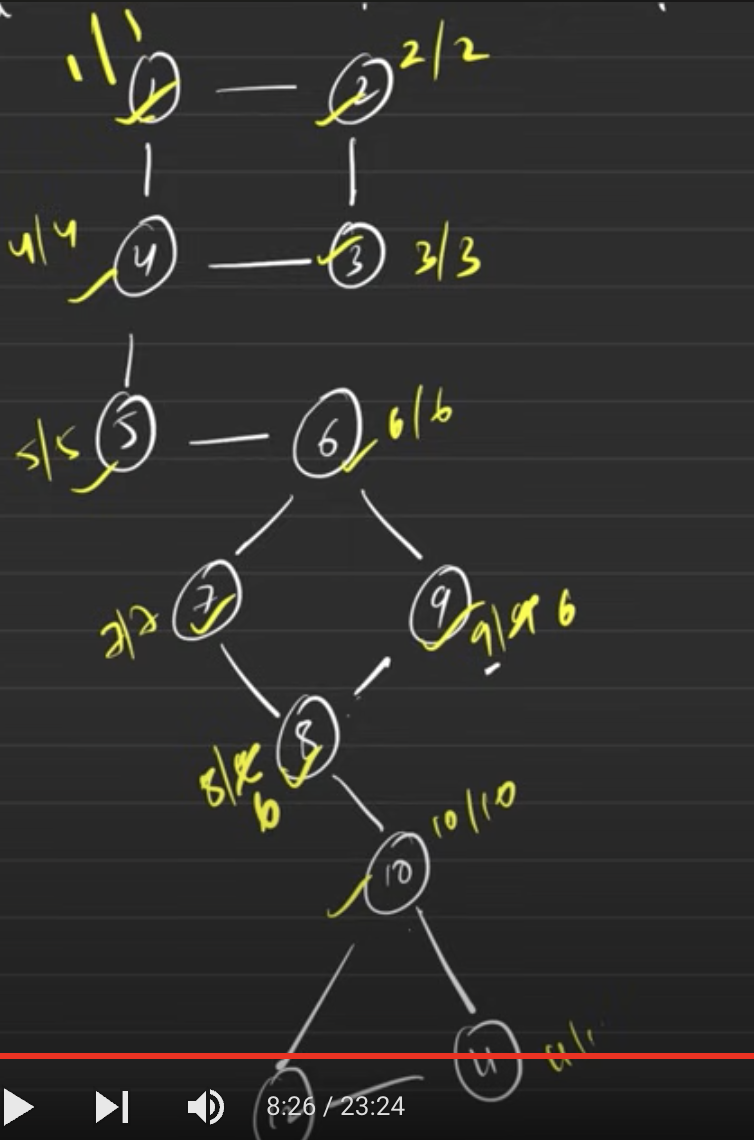 1/1
1
2
2/2
4/4
4
3
3/3
5/5
5
6
6/6
7/7
7
9
9/9 6
8/8
8
6
10/10
10
11
11/
12
8:26 / 23:24